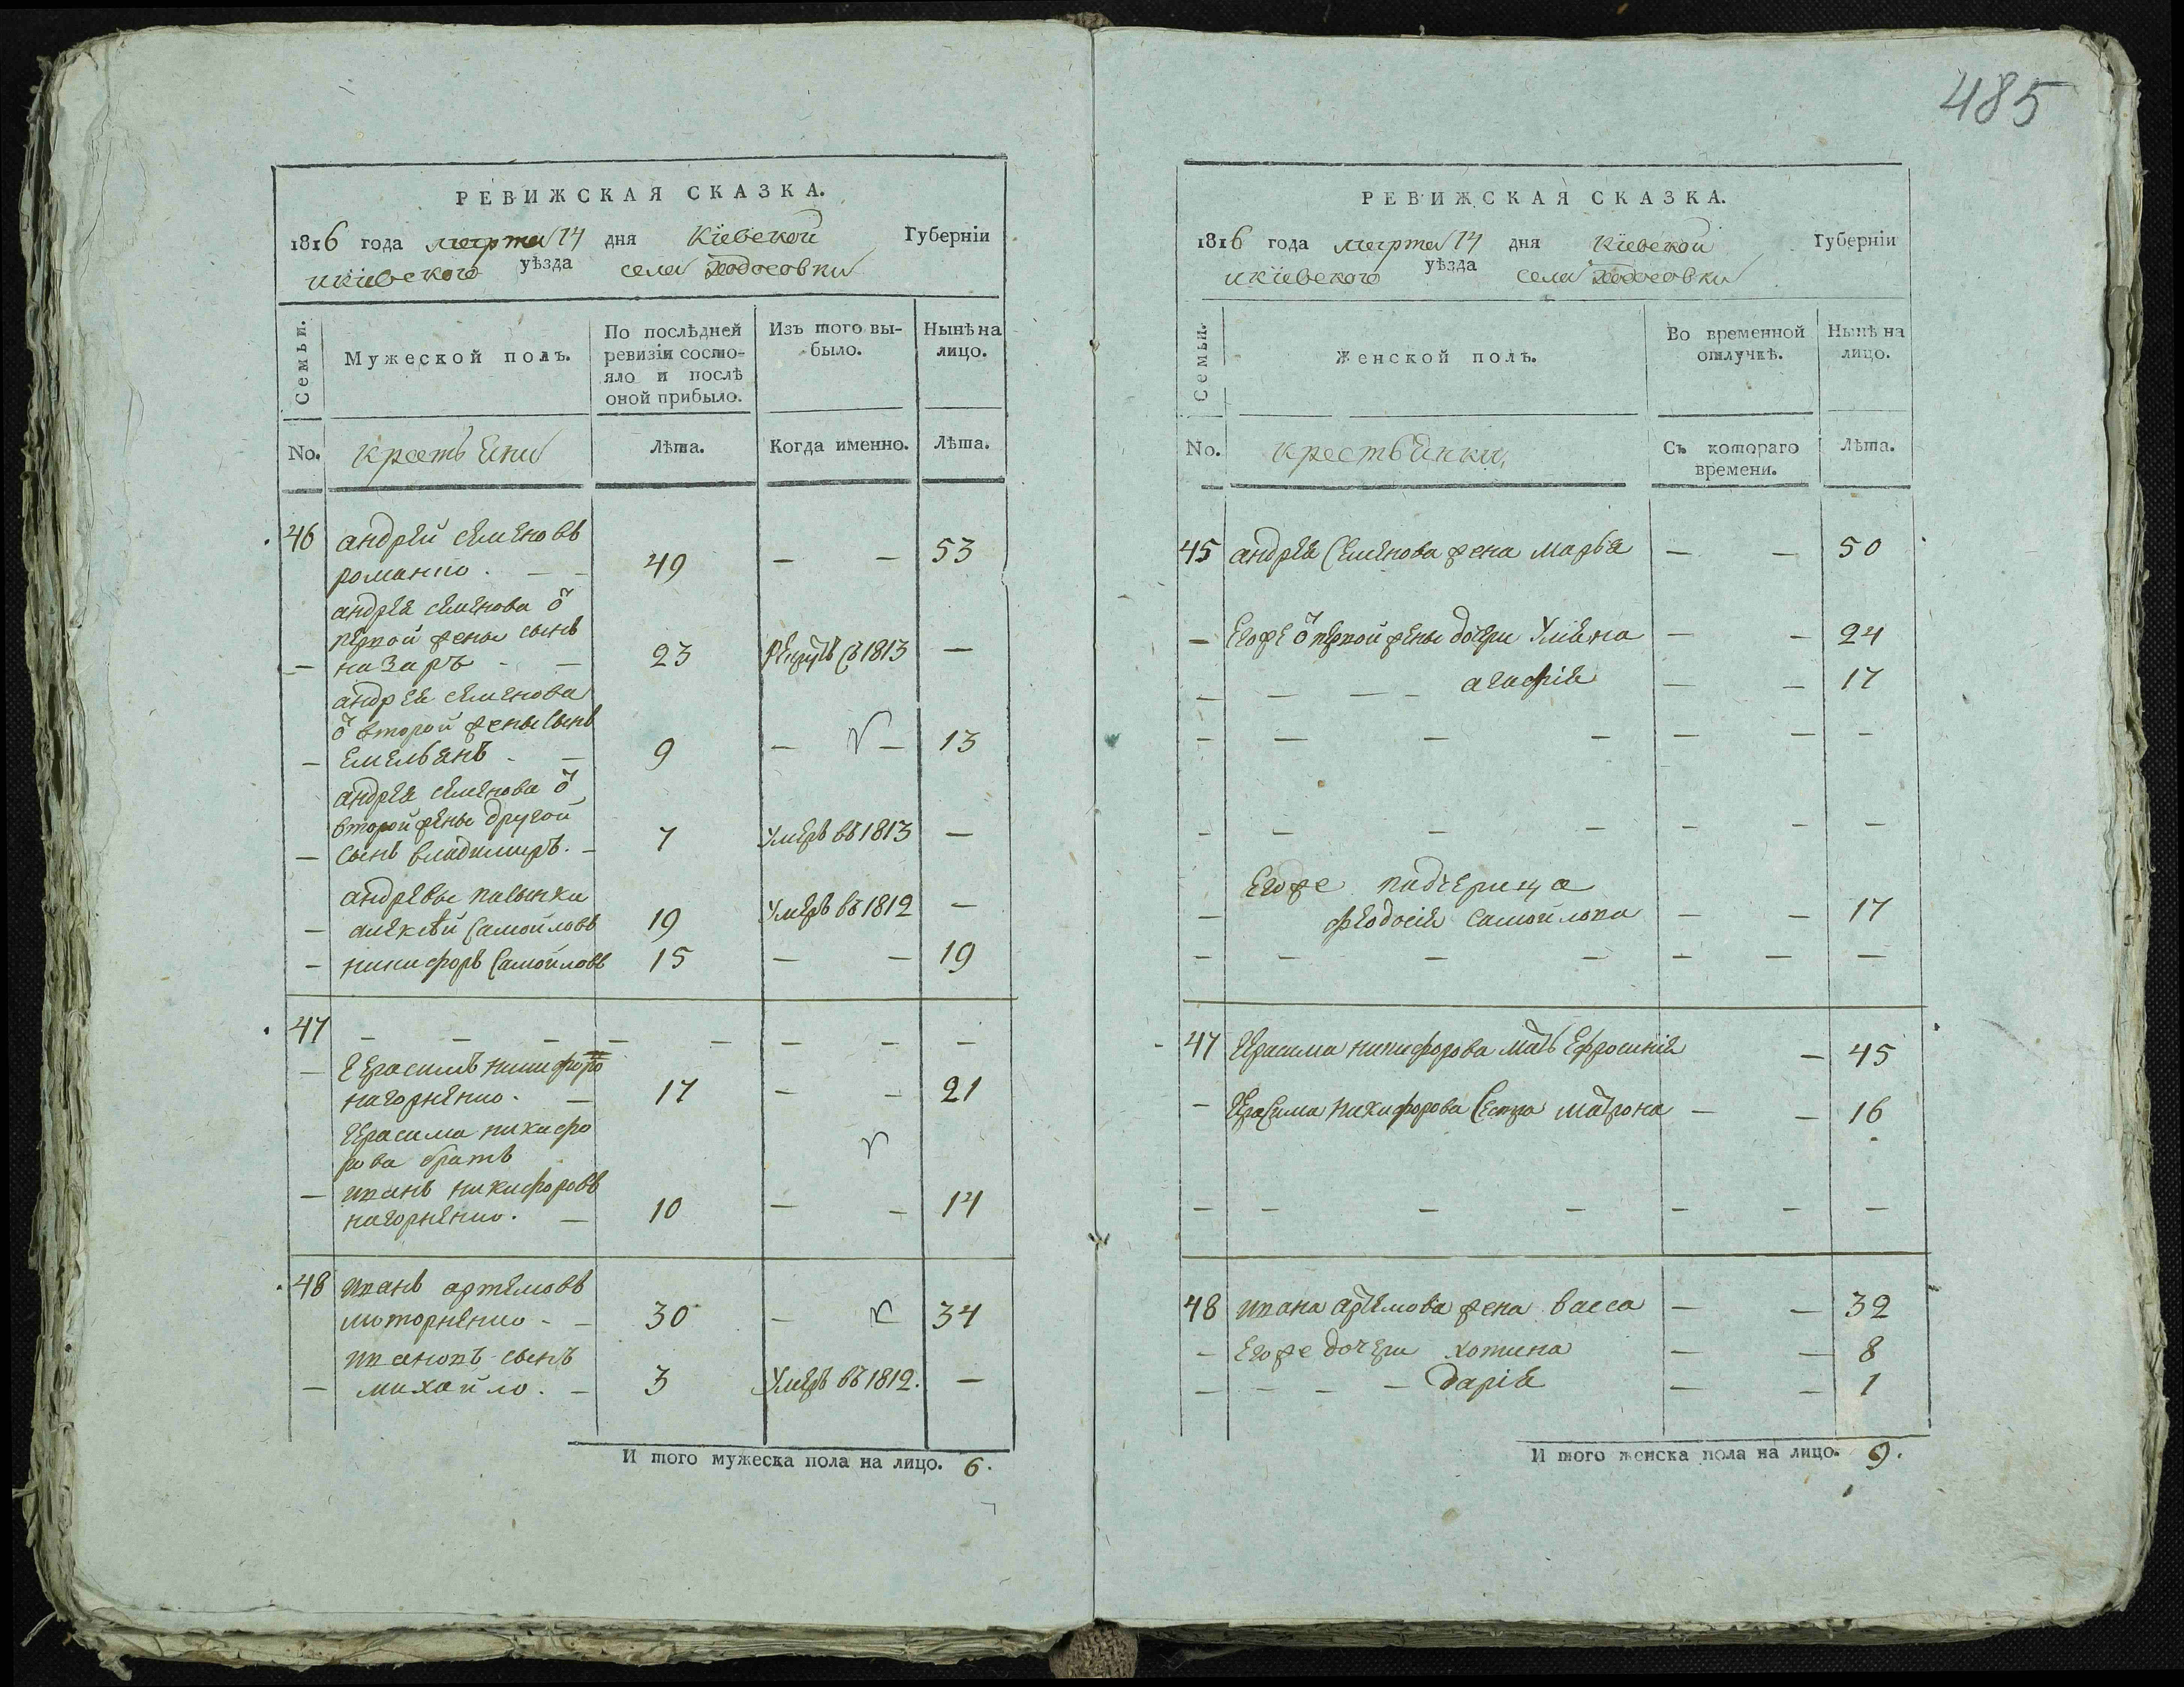 485
РЕВИЖСКАЯ СКАЗКА.
1816 года марта 14 дня Кіевской Губерніи
икіевского уѣзда села Ходосовки
Семьи.
Мужеской полъ.
По послѣдней ревизіи состояло и послѣ оной прибыло.
Изъ того вы-было.
Нынѣ на лицо.
No. крестьяни Лѣта. Когда именно. Лѣта.
46 андрей семеновъ
романко. — — 49 — — 53
андрея семенова ѿ
первой жены сынъ
— назаръ - — 23 Рекрутъ съ 1813 —
андрея семенова
ѿ второй жены сынъ
— емельянъ - — 9 — — 13
андрея семенова ѿ
второй жены другой
— сынъ владимиръ. — 7 умеръ въ 1813 —
андревы пасынки
— алексѣй самойловъ 19 умеръ въ 1812 —
— никифоръ самойловъ 15 — — 19
47 — — — — — — — —
— герасимъ никифоро
нагорненко. — 17 — — 21
герасима никифо
рова братъ
— иванъ никифоровъ
нагорненко. — 10 — — 14
48 иванъ артемовъ
моторненко - - 30 — 34
ивановъ сынъ
— михайло. — 3 умеръ въ 1812. —
И того мужеска пола на лицо. 6.
РЕВИЖСКАЯ СКАЗКА.
1816 года марта 14 дня Кіевской Губерніи
икіевского уѣзда села Ходосовки
Семьи.
Женской полъ.
Во временной отлучкѣ.
Нынѣ на лицо.
No. крестьянки, Съ котораго времени. Лѣта.
45 андрея семенова жена марья — — 50
— егоже ѿ первой жены дочери улияна — — 24
— — — — агафія — — 17
— — — — — — —
— — — — — — —
егоже падчерица
— феодосія самойлова — — 17
— — — — — — —
47 герасима никифорова мать ефросинія — 45
— герасима никифорова сестра матрона — — 16
— — — — — — —
48 ивана артемова жена васса — — 32
— егоже дочери хотина — — 8
— — — — дарія — — 1
И того женска пола на лицо. 9.